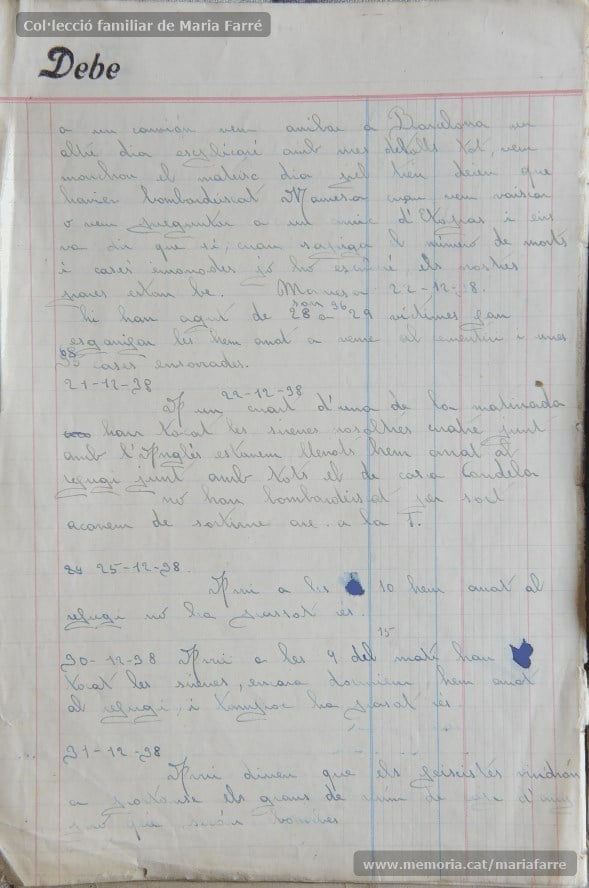 Col·lecció familiar de Maria Farré
Debe
a un camión vem arribar a Barcelona un
altre dia esplicaré amb mes detalls tot, vem
marchar el mateix dia pel tren deien que
havien bombardeixat Manresa cuan vem
o vem preguntar a un amic d'Etapas i ens
va dir que sí, cuan sapiga el número de morts
i cases ho escriuré, els nostres
pares estan be. Manresa 22-12-38.
son 36
hi han agut de 28 a 29 víctimes
les hem anat a veure al cementiri i unes
cases ensorrades.
21-12-38
22-12-38
A un cuart d'una de la matinada
han tocat les sirenes nosaltres cuatre junt
amb l'Anglès estavem llevats hem anat al
refugi junt amb tots el de casa Candela
no han bombardeixat per sort
acavem de sortirne are. a la 1.
25-12-38.
Avui a les 10 hem anat al
refugi no ha passat res.
15
30-12-38 Avui a les 9 del matí han
tocat les sirenes, encara dormiem, hem anat
al refugi, i tampoc ha pasat res.
31-12-38
Avui diuen que els feixistes vindrán
a portarse els grans de raïm de d'any
que serán bombes
www.memoria.cat/mariafarre